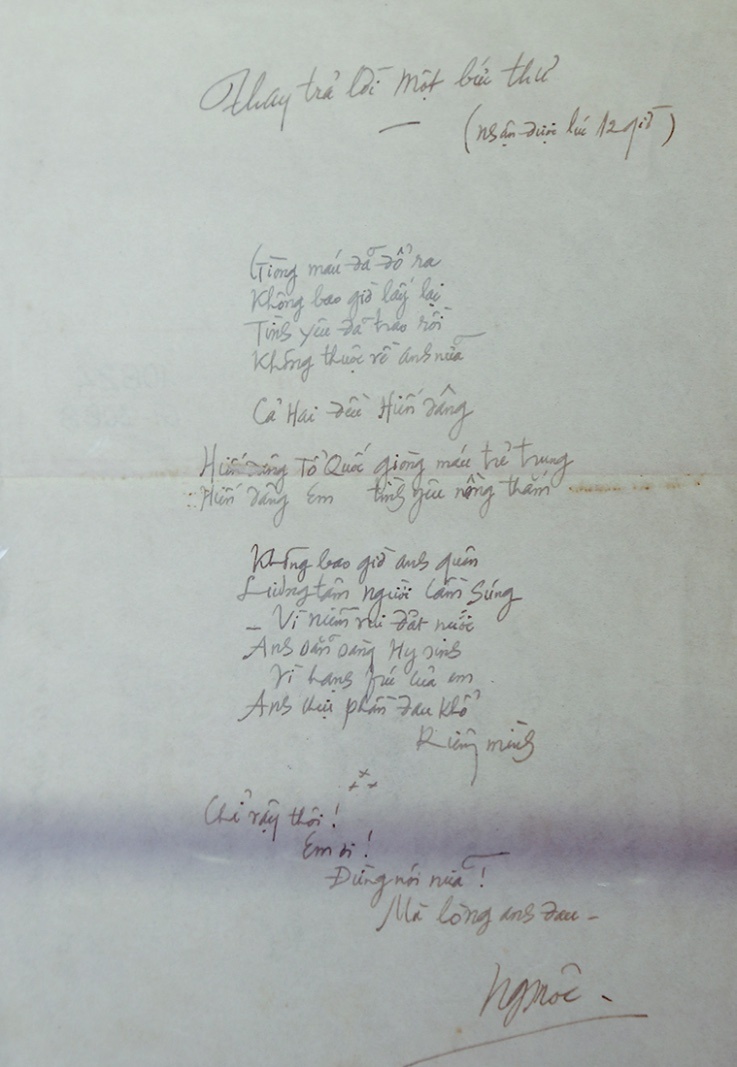 Thay trả lời một bức thư
(nhận được lúc 12 giờ)
Giòng máu đã đổ ra
Không bao giờ lấy lại
Tình yêu đã trao rồi
Không thuộc về anh nữa
Cả Hai đều Hiến dâng
Hiến dâng Tổ Quốc giòng máu trẻ trung
Hiến dâng Em tình yêu nồng thắm
Không bao giờ anh quên
Lương tâm người Cầm Súng
- Vì niềm vui đất nước
Anh sẵn sàng Hy sinh
Vì hạnh phúc của em.
Anh chịu phần đau khổ
Riêng mình
Chỉ vậy thôi!
Em ơi!
Đừng nói nữa!
Mà lòng anh đau -